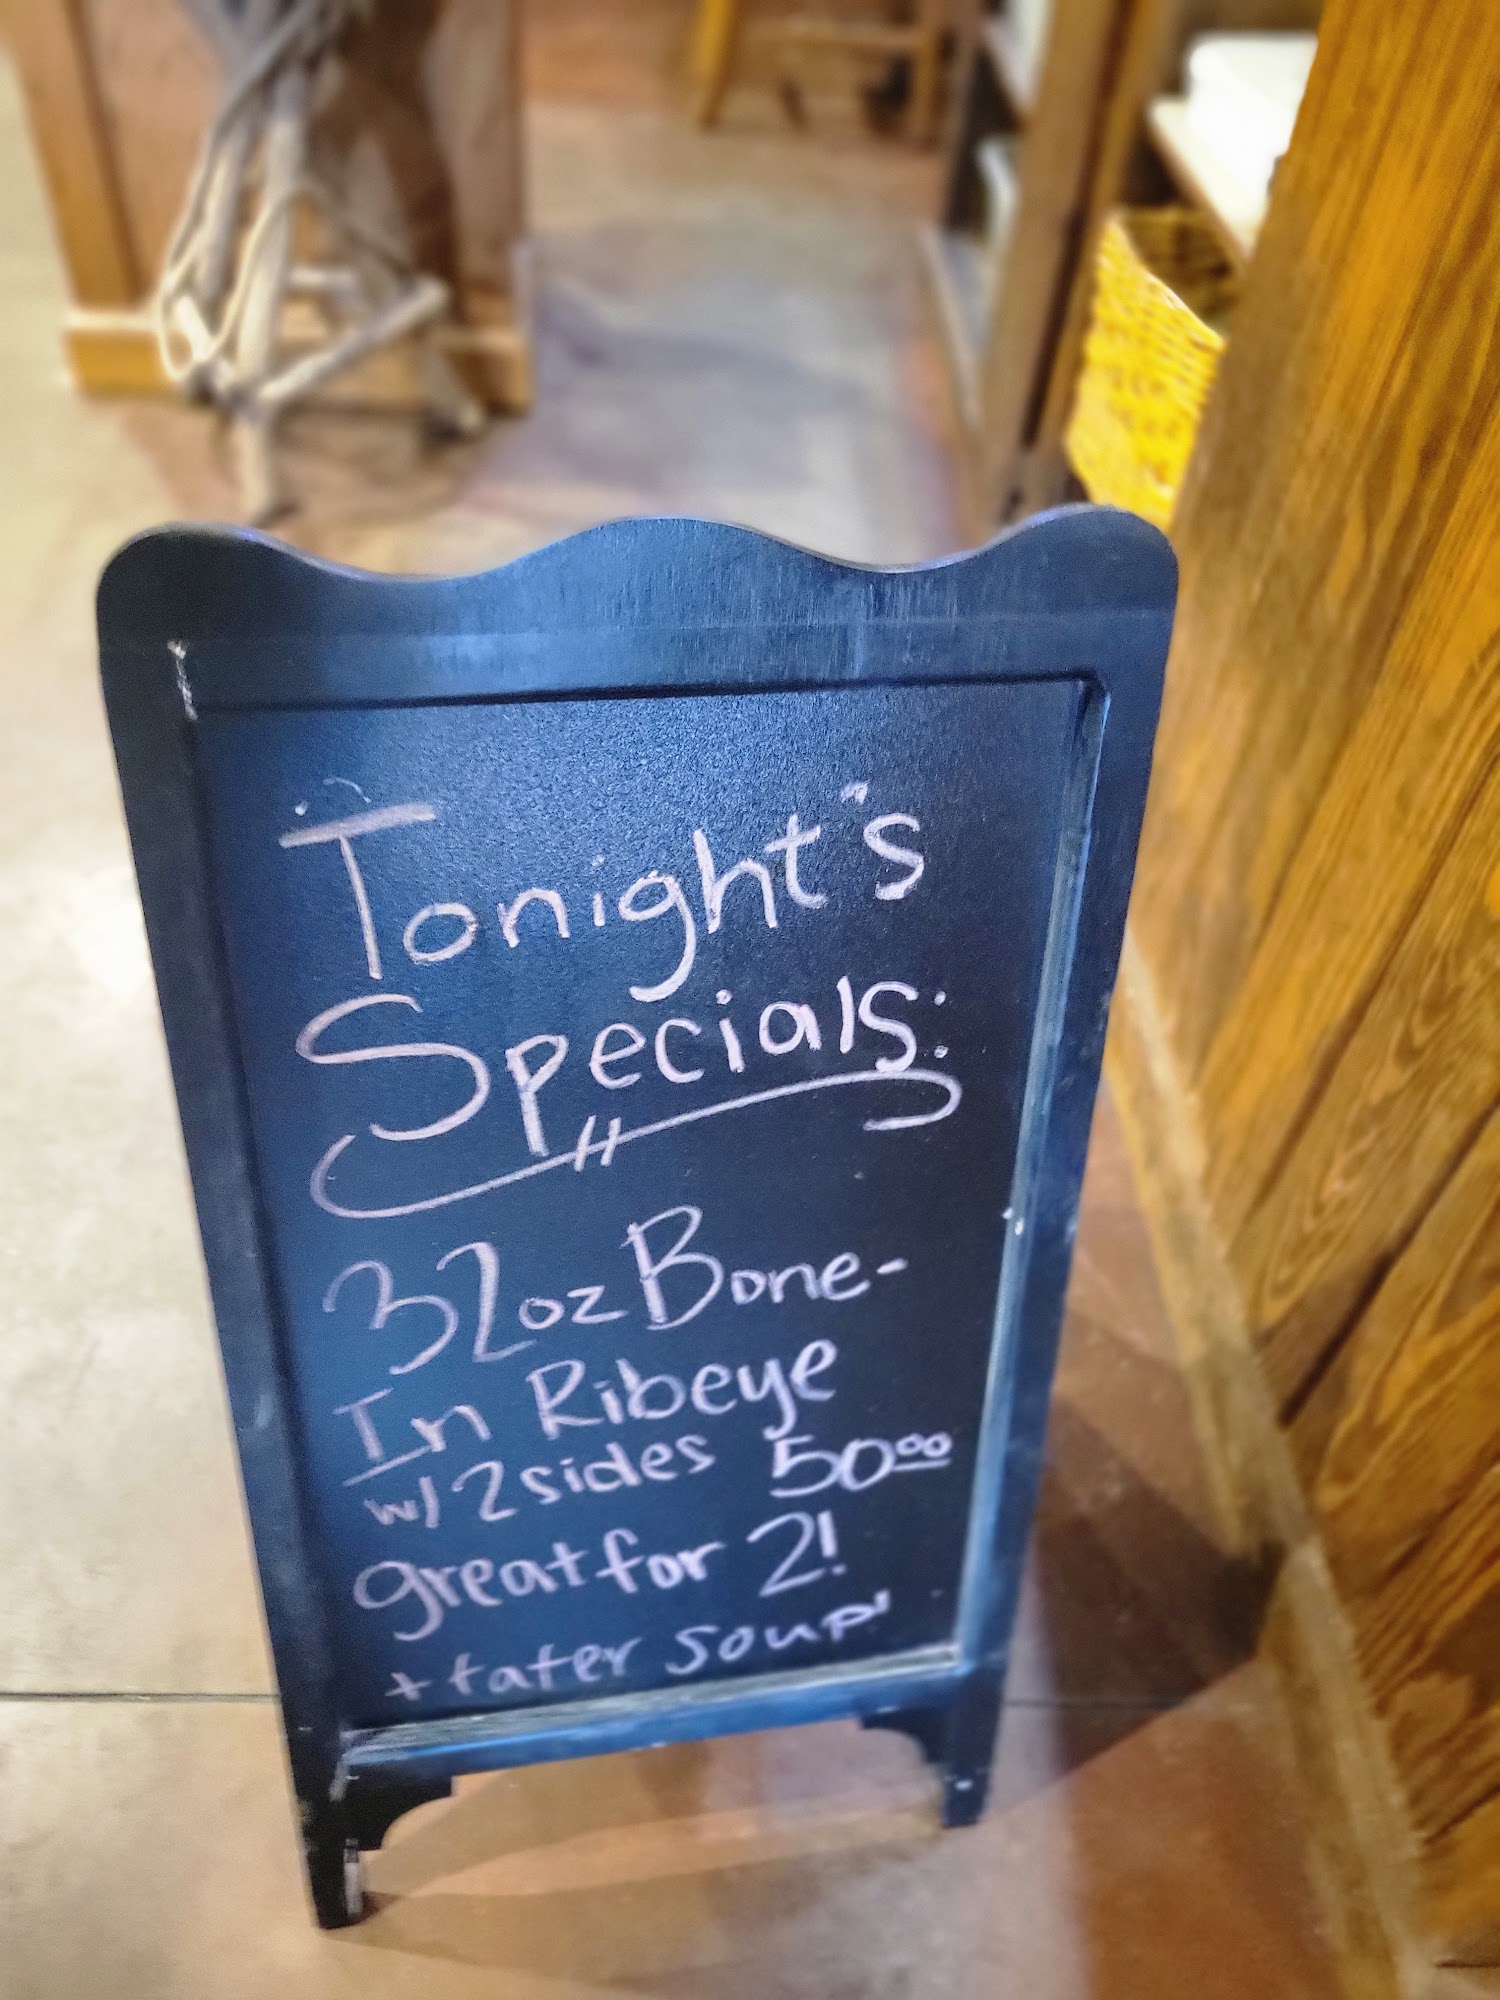 Tonight's
Specials:
32oz Bone-
In Ribeye
w/ 2 sides 50⁰⁰
great for 2!
+ tater soup!